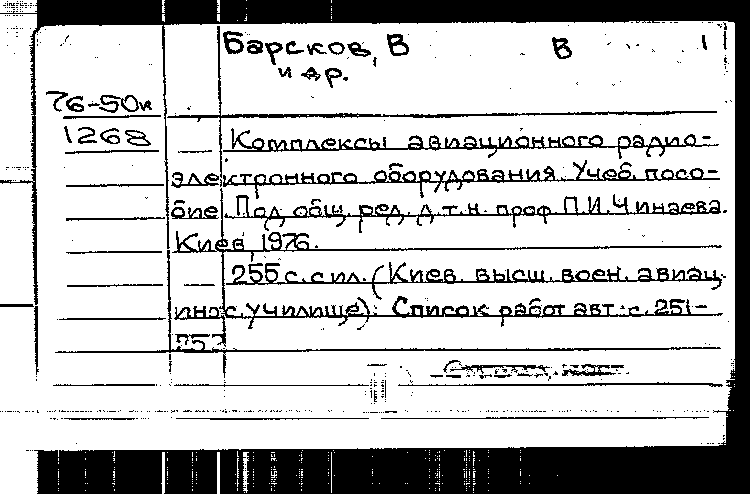 Барсков, В В 1
и др.
76-50к
1268
Комплексы авиационного радио-
электронного оборудования. Учеб. посо-
бие. Под общ. ред. д.т.н. проф. П.И.Чинаева.
Киев, 1976.
255 с. с ил. (Киев. высш. воен. авиац.
инж. училище). Список работ авт.: с. 251-
252